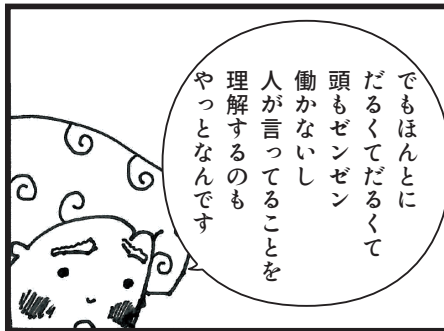 でもほんとに
だるくてだるくて
頭もゼンゼン
働かないし
人が言ってることを
理解するのも
やっとなんです